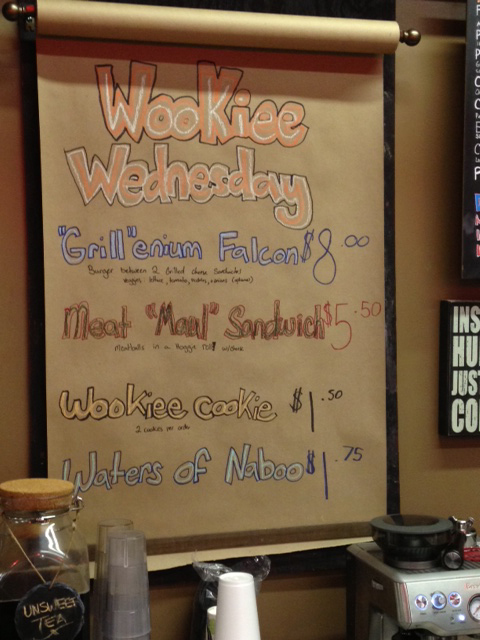 WooKiee
Wednesday
"Grill"enium Falcon $8.00
Burger between 2 Grilled cheese Sandwiches
lettuce, tomato,
Meat "Maul" Sandwich $5.50
meatballs in a hoagie roll w/cheese
WooKiee cookie $1.50
2 cookies per order
Waters of Naboo $1.75
UNSWEET
TEA
INS
HU
JUS
CO